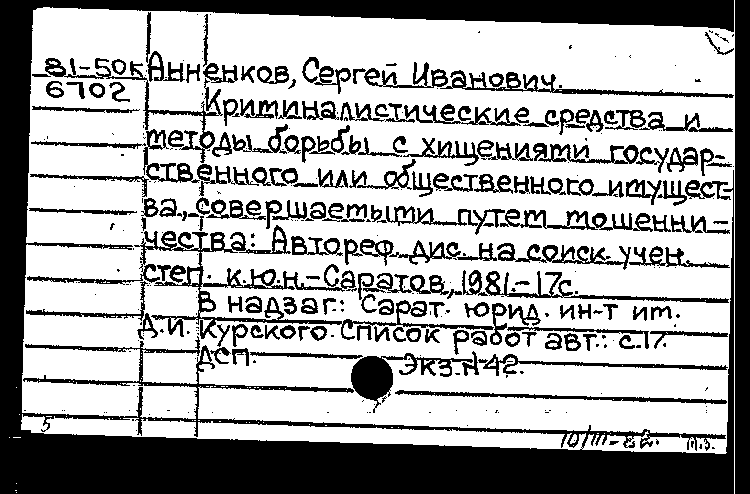 81-50к Анненков, Сергей Иванович.
6702 Криминалистические средства и
методы борьбы с хищениями государ-
ственного или общественного имущест-
ва, совершаемыми путем мошенни-
чества: Автореф. дис. на соиск. учен.
степ. к.ю.н.-Саратов, 1981.-17с.
В надзаг.: Сарат. юрид. ин-т им.
Д.И. Курского. Список работ авт.: с.17.
ДСП. Экз.№42.
5 10/III-82.